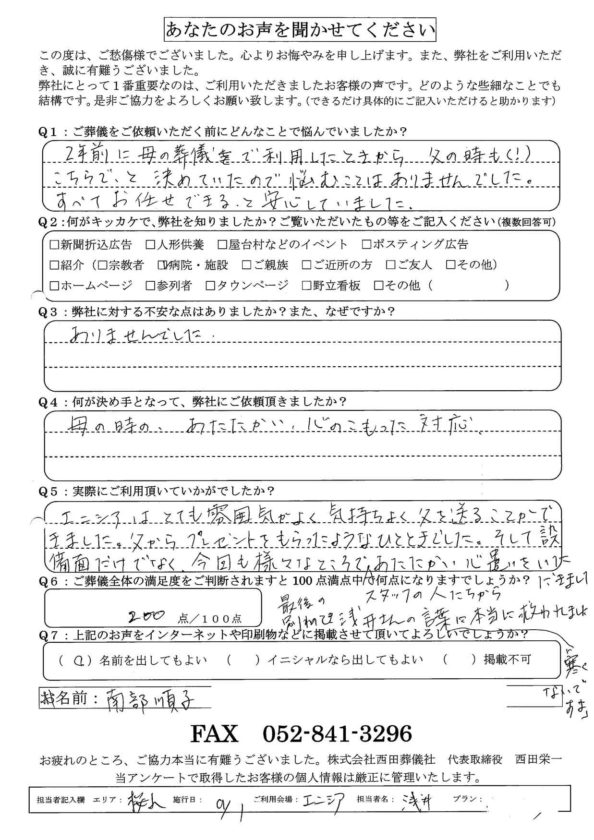 あなたのお声を聞かせてください
この度は、ご愁傷様でございました。心よりお悔やみを申し上げます。また、弊社をご利用いただ
き、誠に有難うございました。
弊社にとって1番重要なのは、ご利用いただきましたお客様の声です。どのような些細なことでも
結構です。是非ご協力をよろしくお願い致します。(できるだけ具体的にご記入いただけると助かります)
Q1:ご葬儀をご依頼いただく前にどんなことで悩んでいましたか?
2年前に母の葬儀をご利用したときから 父の時も(!)
こちらで、と決めていたので悩むことはありませんでした。
すべてお任せできる、と安心していました。
Q2:何がキッカケで、弊社を知りましたか?ご覧いただいたもの等をご記入ください(複数回答可)
□新聞折込広告 □人形供養 □屋台村などのイベント □ポスティング広告
□紹介(□宗教者 □病院・施設 □ご親族 □ご近所の方 □ご友人 □その他)
□ホームページ □参列者 □タウンページ □野立看板 □その他( )
Q3:弊社に対する不安な点はありましたか?また、なぜですか?
ありませんでした。
Q4:何が決め手となって、弊社にご依頼頂きましたか?
母の時の、あたたかい、心のこもった対応。
Q5:実際にご利用頂いていかがでしたか?
エニシアはとても雰囲気がよく気持ちよく父を送ることがで
きました。父からプレゼントをもらったようなひとときでした。そして設
備面だけでなく、今回も様々なところであたたかい心遣いをいた
だきまして
Q6:ご葬儀全体の満足度をご判断されますと100点満点中何点になりますでしょうか?
200 点/100点
スタッフの人たちから
最後の
別れで浅井さんの言葉に本当に救われました
「寒く
ないで
すよ」
Q7:上記のお声をインターネットや印刷物などに掲載させて頂いてよろしいでしょうか?
(○)名前を出してもよい ( )イニシャルなら出してもよい ( )掲載不可
名前:南部順子
FAX 052-841-3296
お疲れのところ、ご協力本当に有難うございました。株式会社西田葬儀社 代表取締役 西田栄一
当アンケートで取得したお客様の個人情報は厳正に管理いたします。
担当者記入欄 エリア: 施行日:9/1 ご利用会場:エニシア 担当者名:浅井 プラン: